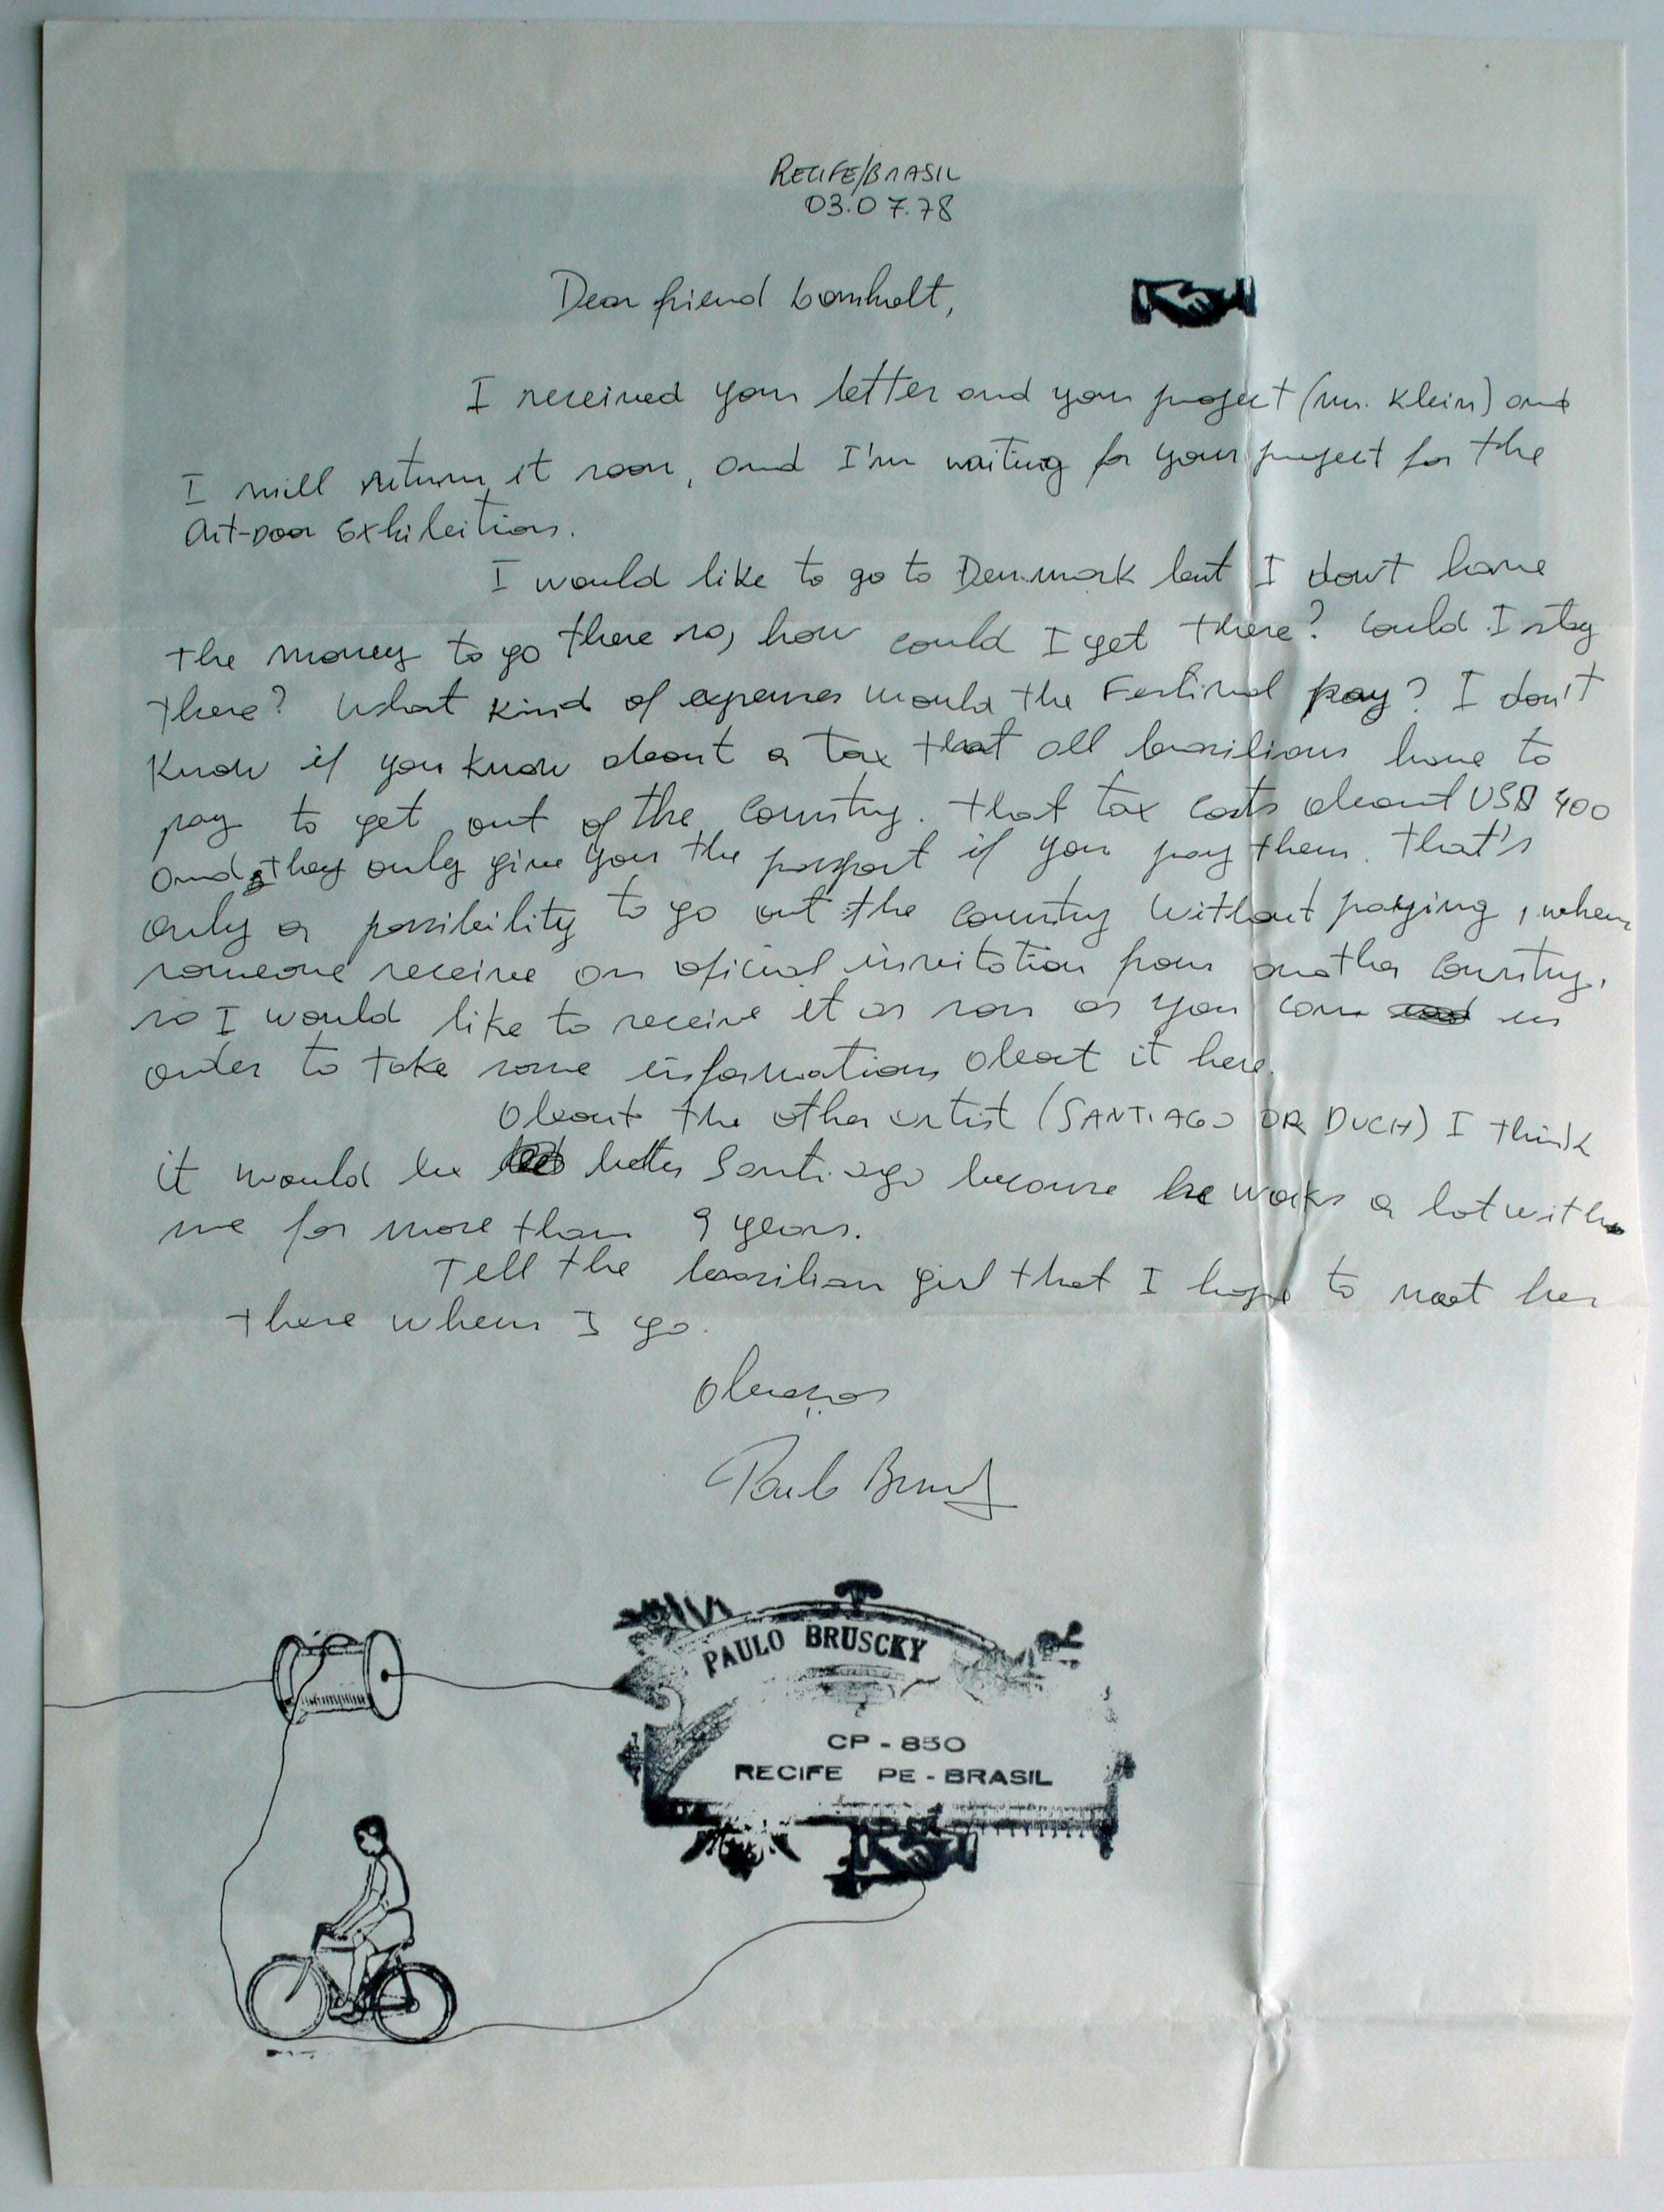 RECIFE/BRASIL
03.07.78
Dear friend bomholt,
I received your letter and your project (mr. Klein) and
I will return it soon, and I'm waiting for your project for the
Art-Door Exhibition.
I would like to go to Denmark but I don't have
the money to go there so, how could I get there? Could I stay
there? What kind of expenses would the Festival pay? I don't
know if you know about a tax that all brasilians have to
pay to get out of the country. That tax costs about US$ 400
and they only give you the passport if you pay them. That's
only a possibility to go out the country without paying, when
someone receive an oficial invitation from another country,
so I would like to receive it as soon as you can in
order to take some informations about it here.
About the other artist (SANTIAGO OR DUCH) I think
it would be better Santiago because he works a lot with
me for more than 9 years.
Tell the brasilian girl that I hope to meet her
there when I go.
Abraços
Paulo Bruscky
PAULO BRUSCKY
CP - 850
RECIFE PE - BRASIL